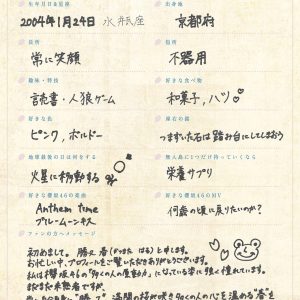 生年月日&星座
出身地
2004年1月24日 水瓶座
京都府
長所
短所
常に笑顔
不器用
趣味・特技
好きな食べ物
読書・人狼ゲーム
和菓子,ハツ
好きな色
座右の銘
ピンク,ボルドー
つまずいた石は踏み台にしてしまおう
地球最後の日は何をする
無人島に1つだけ持っていくなら
火星に移動する
栄養サプリ
好きな櫻坂46の楽曲
好きな櫻坂46のMV
Anthem time
ブルームーンキス
何歳の頃に戻りたいのか?
ファンの方へメッセージ
初めまして。勝又 春(かつまた はる)と申します。
お忙しい中、プロフィールをご覧いただきありがとうございます。
私は櫻坂46の